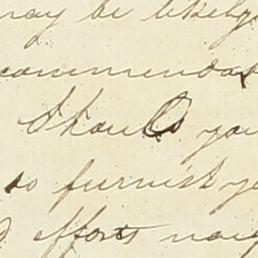 may be likely
commendat
Should you
to furnish y
efforts may